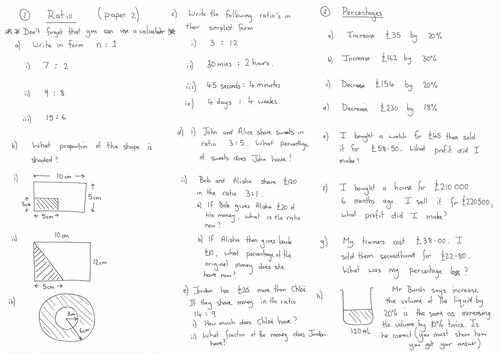 ① Ratio (paper 2)
** Don't forget that you can use a calculator **
a) Write in form n : 1
i) 7 : 2
ii) 9 : 8
iii) 15 : 6
b) What proportion of the shape is
shaded?
i)
10cm
5cm
3cm
5cm
ii)
10cm
12cm
5cm
iii)
3cm
6cm
c) Write the following ratio's in
their simplest form
i) 3 : 12
ii) 30 mins : 2 hours.
iii) 45 seconds : 4 minutes
iv) 4 days : 4 weeks
d) i) John and Alice share sweets in
ratio 3:5. What percentage
of sweets does John have?
ii) Bob and Alisha share £120
in the ratio 3:1.
a) If Bob gives Alisha £20 of
his money, what is the ratio
now?
b) If Alisha then gives back
£10, what percentage of the
original money does she
have now?
e) Jordan has £35 more than Chloe
If they share money in the ratio
14 : 9
i) How much does Chloe have?
ii) What fraction of the money does Jordan
have?
② Percentages
a) Increase £35 by 20%
b) Increase £162 by 30%
c) Decrease £154 by 20%
d) Decrease £230 by 18%
e) I bought a watch for £45 then sold
it for £58.50. What profit did I
make?
f) I bought a house for £210 000
6 months ago. I sell it for £220500,
what profit did I make?
g) My trainers cost £38.00. I
sold them secondhand for £22.80.
What was my percentage loss?
h)
120ml
Mr Burch says increase
the volume of the liquid by
20% is the same as increasing
the volume by 10% twice. Is
he correct (you must show how
you got your answer)